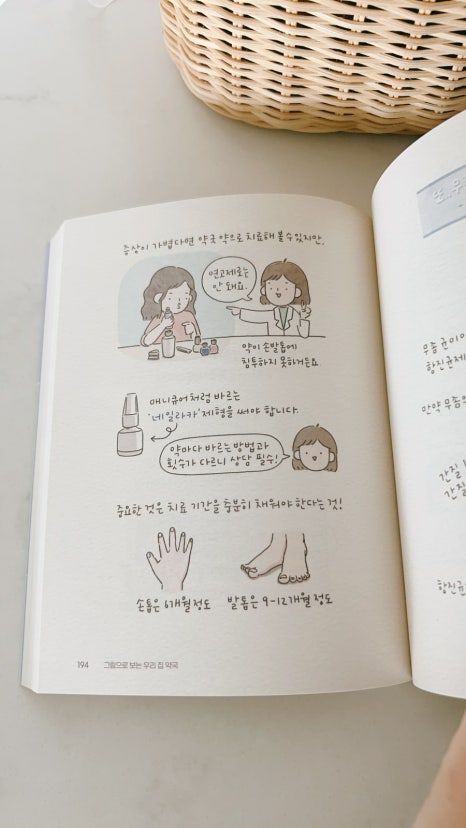 증상이 가볍다면 약국 약으로 치료해 볼 수 있지만,
연고제로는
안 돼요.
약이 손발톱에
침투하지 못하거든요
매니큐어처럼 바르는
'네일라카' 제형을 써야 합니다.
약마다 바르는 방법과
횟수가 다르니 상담 필수!
중요한 것은 치료 기간을 충분히 채워야 한다는 것!
손톱은 6개월 정도
발톱은 9-12개월 정도
194 그림으로 보는 우리 집 약국
무좀균이
항진균제
만약 무좀
간질
간질
항진균